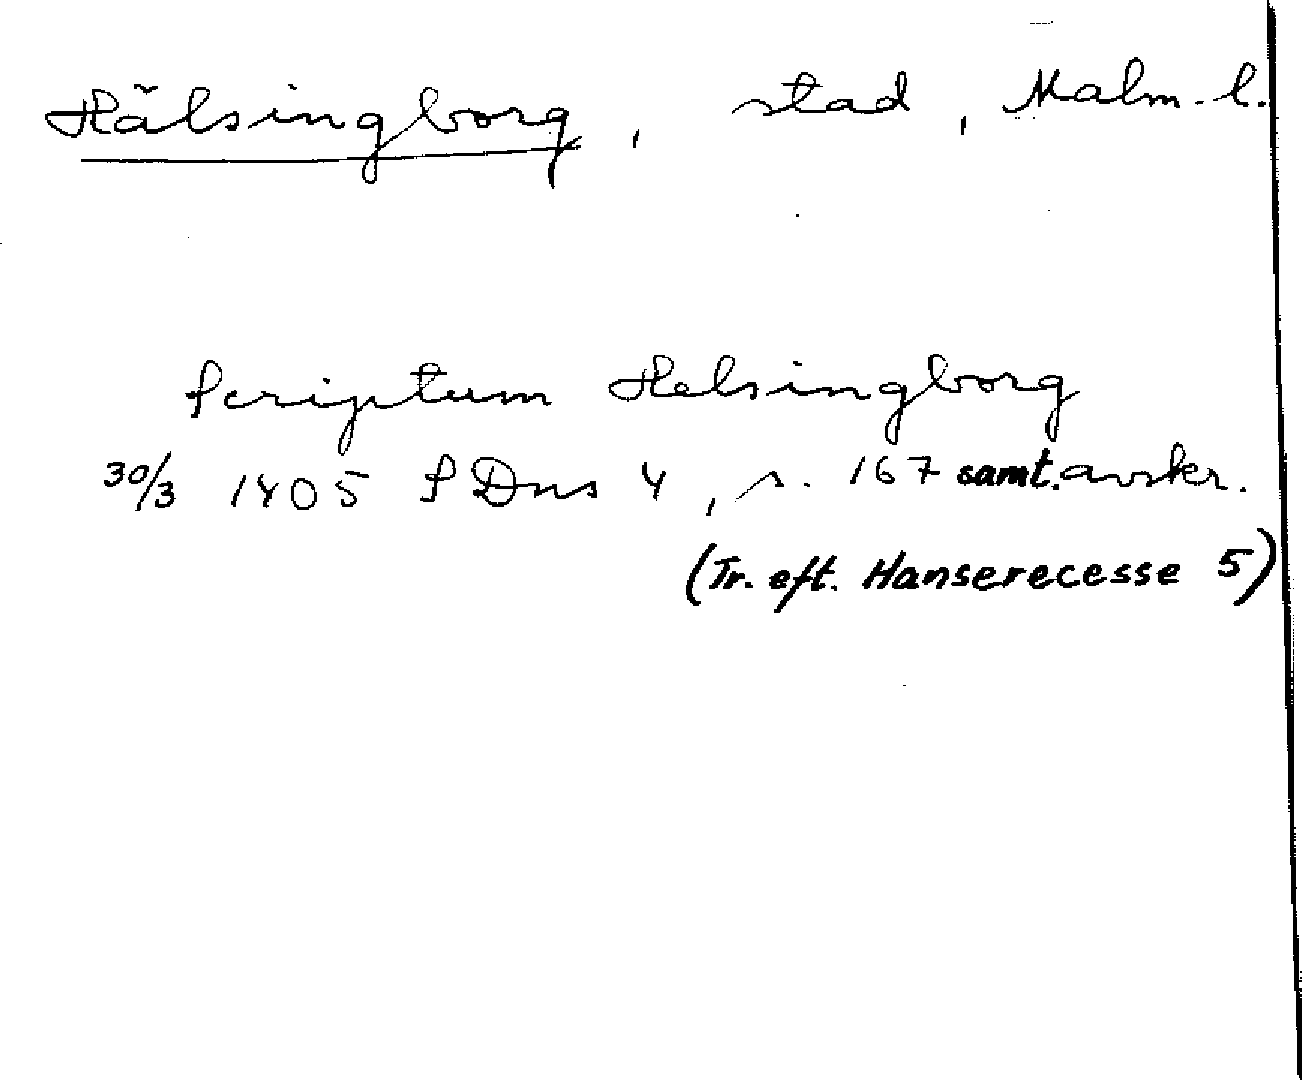 Hälsingborg, stad, Malm. l.
Scriptum Helsingborg
30/3 1405 SDns 4, s. 167 samt. avskr.
(Tr. eft. Hanserecesse 5)